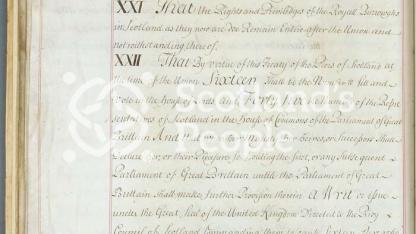 XXI That the Rights and Priviledges of the Royall Burroughs
in Scotland as they now are Doe Remain Entire after the Union and
notwithstanding thereof.
XXII That by virtue of this Treaty of the Peers of Scotland at
the time of the Union Sixteen shall be the Number to sitt and
Vote in the house of Lords and Forty five the number of the Repre
sentatives of Scotland in the house of Commons of the Parliament of Great
Brittain And that when her Majesty her heires or Successors Shall
Declare her or their Pleasure for holding the first or any Subsequent
Parliament of Great Brittain untill the Parliament of Great
Brittain Shall make further Provision therein a Writ do issue
under the Great Seal of the United Kingdom Directed to the Privy
Council of Scotland Commanding them to cause Sixteen Peers who
Scotland's
People